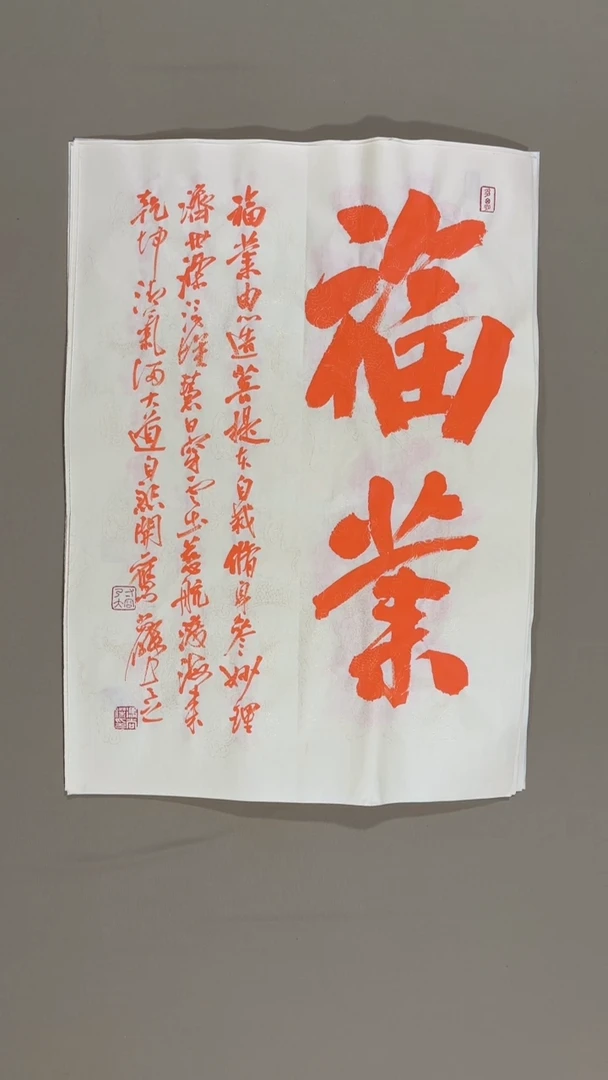 福業
福業由心造菩提在自栽脩身參妙理
濟世慧日穿雲出慈航渡海来
乾坤清氣滿大道自然開